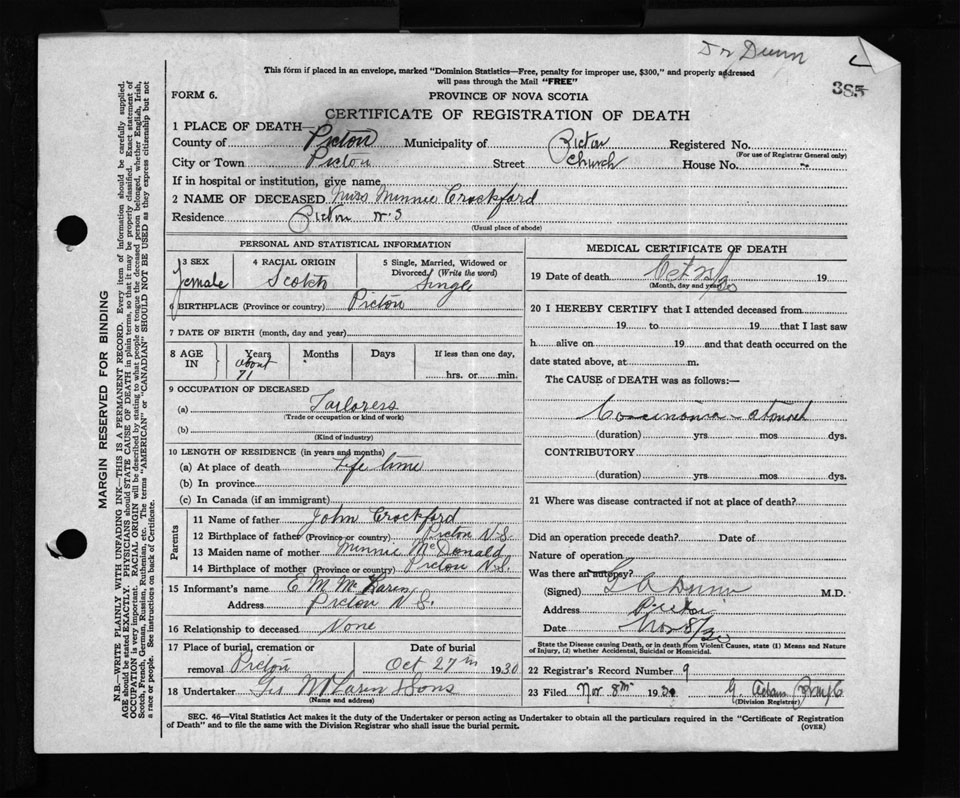 Dr Dunn
385
This form if placed in an envelope, marked "Dominion Statistics—Free, penalty for improper use, $300," and properly addressed
will pass through the Mail "FREE"
FORM 6. PROVINCE OF NOVA SCOTIA
CERTIFICATE OF REGISTRATION OF DEATH
1 PLACE OF DEATH—
County of Pictou Municipality of Pictou Registered No.
(For use of Registrar General only)
City or Town Pictou Street Church House No. -
If in hospital or institution, give name
2 NAME OF DECEASED Miss Minnie Crockford
Residence Pictou N.S
(Usual place of abode)
PERSONAL AND STATISTICAL INFORMATION
3 SEX 4 RACIAL ORIGIN 5 Single, Married, Widowed or
Divorced (Write the word)
female Scotch Single
6 BIRTHPLACE (Province or country) Pictou
7 DATE OF BIRTH (month, day and year)
8 AGE IN Years Months Days If less than one day,
about
71 hrs. or min.
9 OCCUPATION OF DECEASED
(a) Tailoress
(Trade or occupation or kind of work)
(b)
(Kind of industry)
10 LENGTH OF RESIDENCE (in years and months)
(a) At place of death Life time
(b) In province
(c) In Canada (if an immigrant)
Parents
11 Name of father John Crockford
12 Birthplace of father (Province or country) Pictou N.S.
13 Maiden name of mother Minnie McDonald
14 Birthplace of mother (Province or country) Pictou N.S.
15 Informant's name E M McLaren
Address Pictou N S.
16 Relationship to deceased None
17 Place of burial, cremation or Date of burial
removal Pictou Oct 27th 1930
18 Undertaker Geo McLaren & Sons
(Name and address)
MEDICAL CERTIFICATE OF DEATH
19 Date of death Oct 25/30 19
(Month, day and year)
20 I HEREBY CERTIFY that I attended deceased from
19 to 19 that I last saw
h alive on 19 and that death occurred on the
date stated above, at m.
The CAUSE of DEATH was as follows:—
Carcinoma - stomach
(duration) yrs. mos. dys.
CONTRIBUTORY
(duration) yrs. mos. dys.
21 Where was disease contracted if not at place of death?
Did an operation precede death? Date of
Nature of operation
Was there an autopsy?
(Signed) G A Dunn M.D.
Address Pictou
Date Nov 8/30
State the Disease causing Death, or in death from Violent Causes, state (1) Means and Nature
of Injury, (2) whether Accidental, Suicidal or Homicidal.
22 Registrar's Record Number 9
23 Filed Nov. 8th 1930 G.
(Division Registrar)
SEC. 46—Vital Statistics Act makes it the duty of the Undertaker or person acting as Undertaker to obtain all the particulars required in the "Certificate of Registration
of Death" and to file the same with the Division Registrar who shall issue the burial permit. (OVER)
MARGIN RESERVED FOR BINDING
N.B.—WRITE PLAINLY WITH UNFADING INK—THIS IS A PERMANENT RECORD. Every item of information should be carefully supplied.
AGE should be stated EXACTLY. PHYSICIANS should STATE CAUSE OF DEATH in plain terms, so that it may be properly classified. Exact statement of
OCCUPATION is very important. RACIAL ORIGIN will be described by stating to what people or tongue the deceased person belonged, whether English, Irish,
Scotch, French, German, Russian, Ruthenian, etc. The terms "AMERICAN" or "CANADIAN" SHOULD NOT BE USED as they express citizenship but not
a race or people. See instructions on back of Certificate.